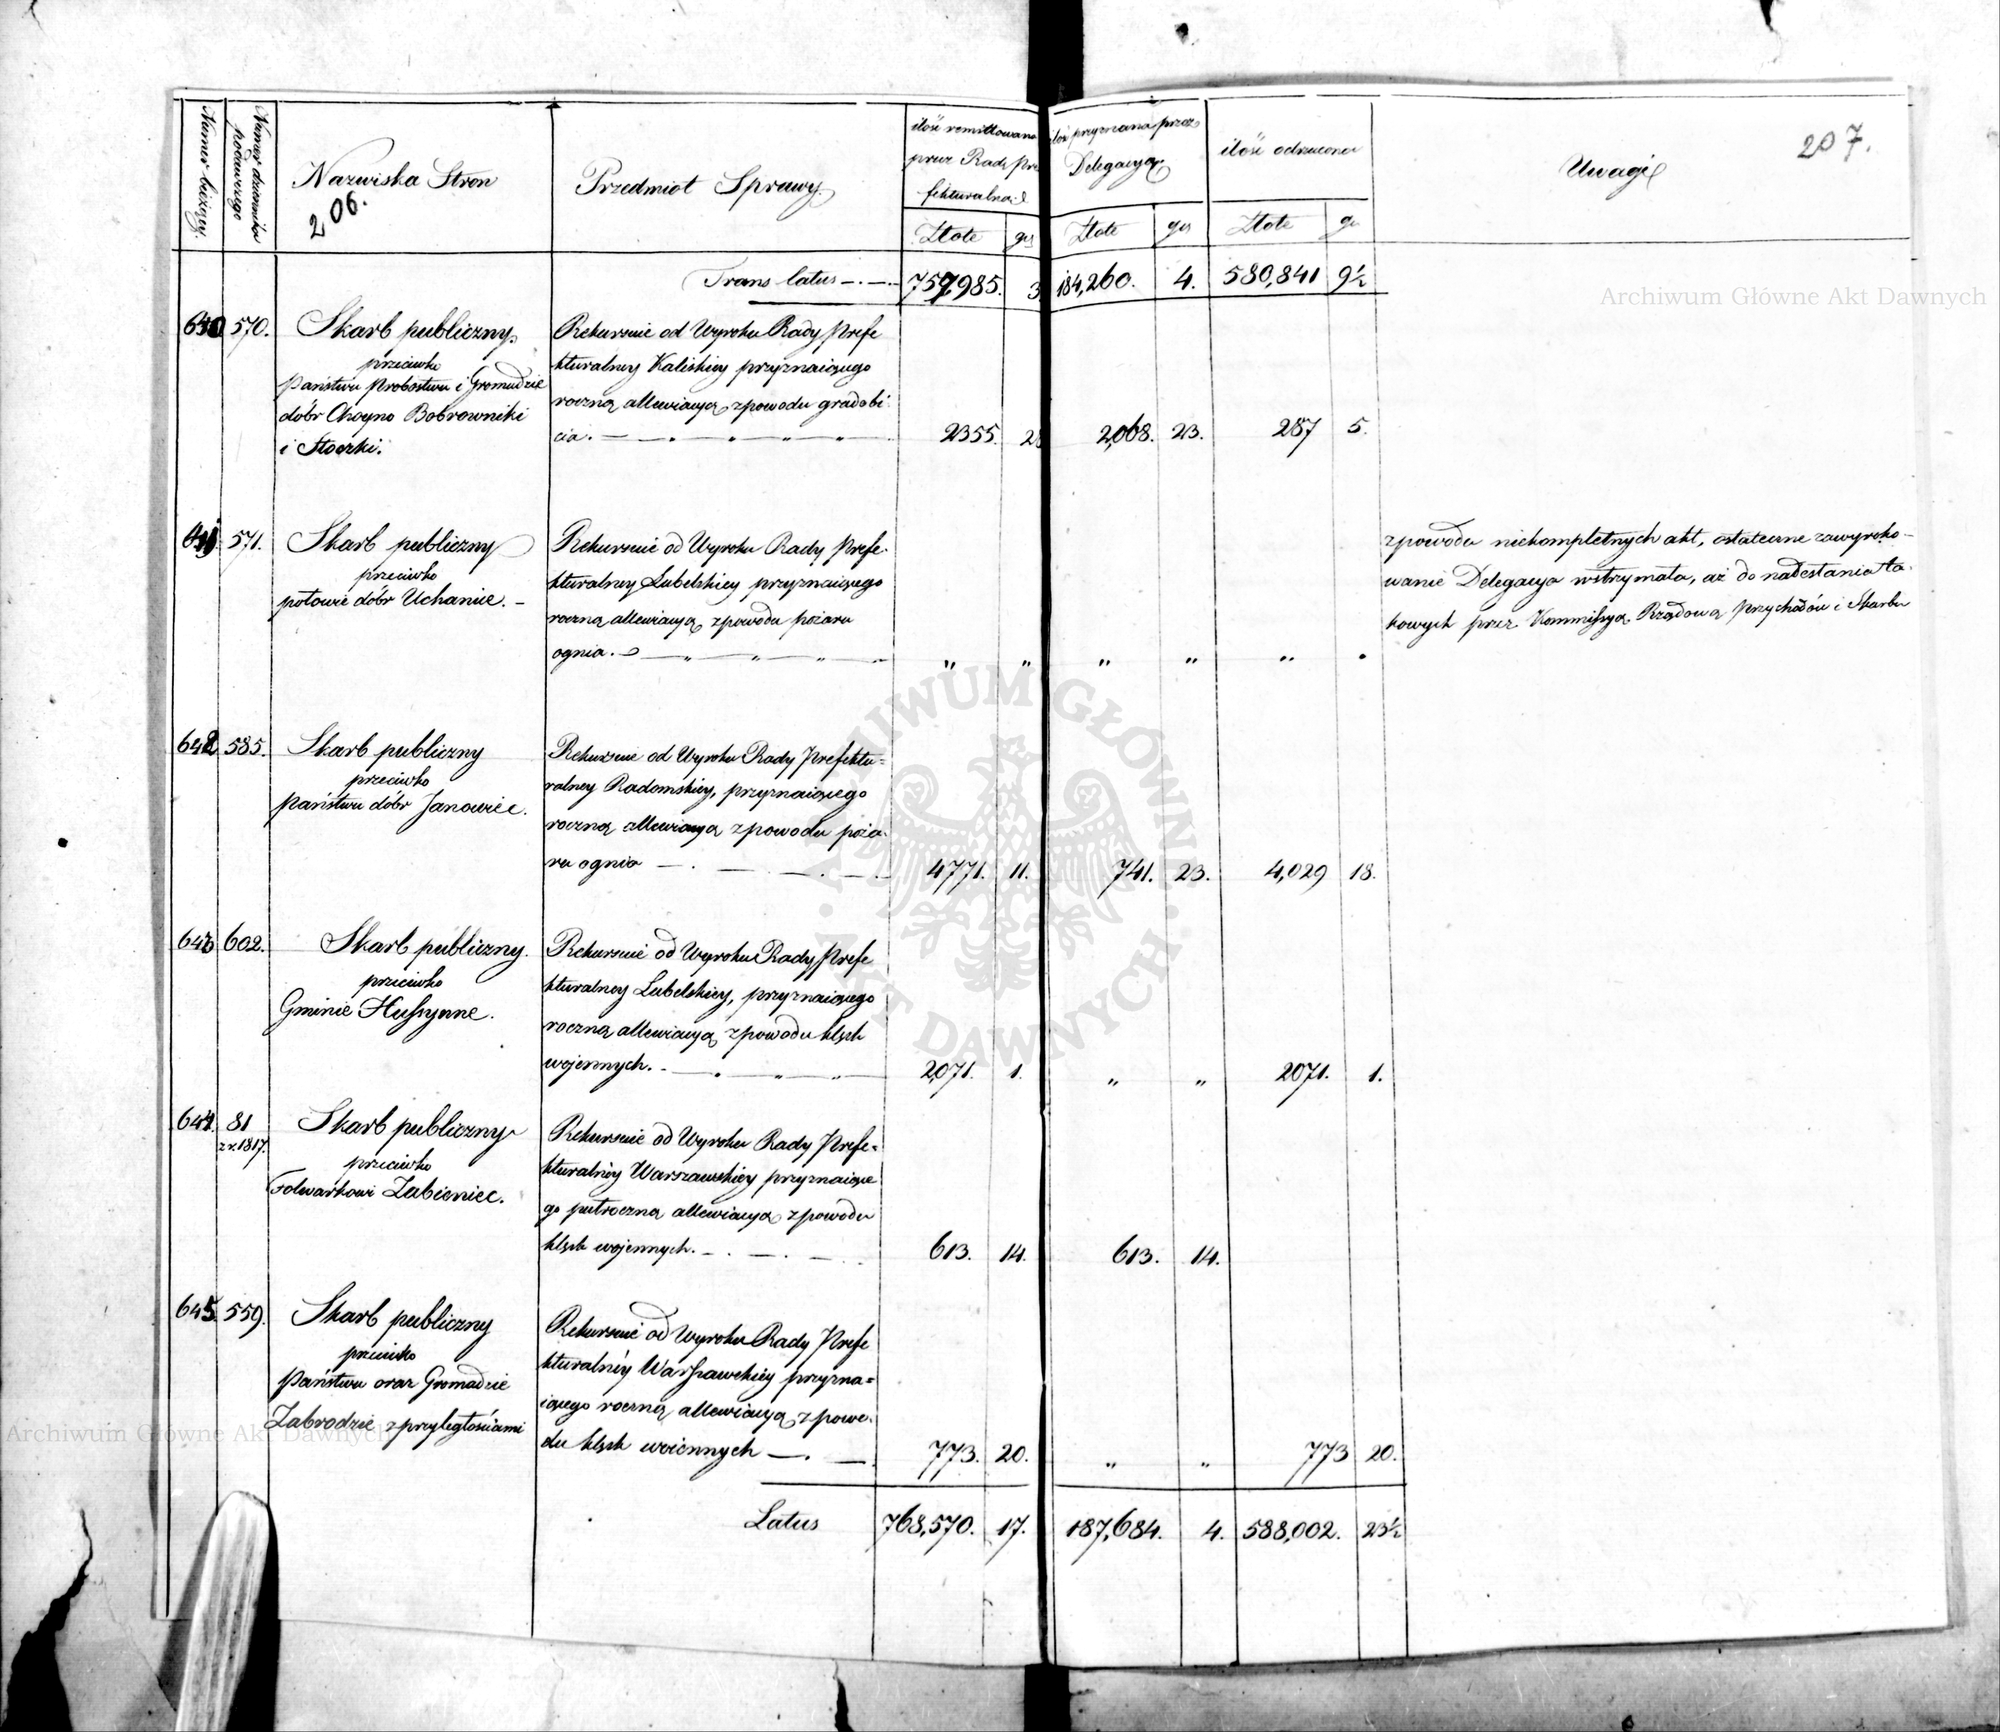 Numer bieżący.
Numer dziennika
podawczego
Nazwiska Stron
206.
Przedmiot Sprawy.
ilość remittowana
przez Radę Pre
fekturalną
Złote gr
ilość przyznana przez
Delegacyą
Złote gr
ilość odrzucona
Złote gr
Uwagi
207.
Trans latus 757,985. 3 184,260. 4. 580,841 9½
640 570. Skarb publiczny
przeciwko
Państwu Probostwu i Gromadzie
dóbr Choyno Bobrowniki
i Stoczki.
Rekursuie od Wyroku Rady Prefe
kturalney Kaliskiey przyznaiącego
roczną allewiacyą z powodu gradobi
cia. 2355. 28 2,068. 23. 287 5.
641 571. Skarb publiczny
przeciwko
połowie dóbr Uchanie.
Rekursuie od Wyroku Rady Prefe-
kturalney Lubelskiey przyznaiącego
roczną allewiacyą z powodu pożaru
ognia. „ „ „ „ „
z powodu niekompletnych akt, ostateczne zawyroko-
wanie Delegacya wstrzymała, aż do nadesłania ta-
kowych przez Kommissyą Rządową Przychodów i Skarbu
642 585. Skarb publiczny
przeciwko
Państwu dóbr Janowiec.
Rekursuie od Wyroku Rady Prefektu=
ralney Radomskiey, przyznaiącego
roczną allewiacyą z powodu poża-
ru ognia 4771. 11. 741. 23. 4,029 18.
643 602. Skarb publiczny.
przeciwko
Gminie Hussynne.
Rekursuie od Wyroku Rady Prefe
kturalney Lubelskiey, przyznaiącego
roczną allewiacyą z powodu klęsk
wojennych. 2,071. 1. „ „ 2071. 1.
644. 81
z r. 1817.
Skarb publiczny
przeciwko
Folwarkowi Zabieniec.
Rekursuie od Wyroku Rady Prefe=
kturalnéy Warszawskiey przyznaiące
go półroczną allewiacyą z powodu
klęsk wojennych. 613. 14. 613. 14.
645. 559. Skarb publiczny
przeciwko
Państwu oraz Gromadzie
Zabrodzie z przyległościami
Rekursuie od Wyroku Rady Prefe
kturalnéy Warszawskiey przyzna=
iącego roczną allewiacyą z powo-
du klęsk woiennych 773. 20. „ „ 773 20.
Latus 768,570. 17. 187,684. 4. 588,002. 23½
Archiwum Główne Akt Dawnych
ARCHIWUM GŁÓWNE AKT DAWNYCH
Archiwum Główne Akt Dawnych